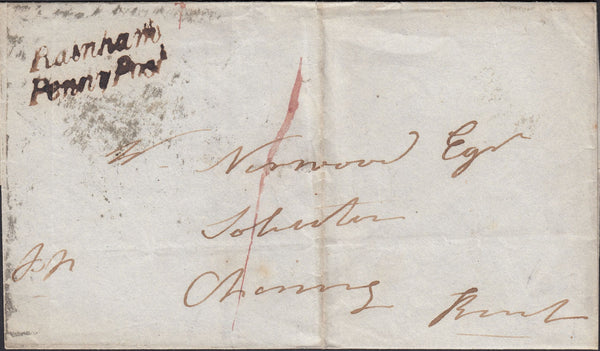 Rainham
Penny Post
W Norwood Esqr
Solicitor
Charing
Kent